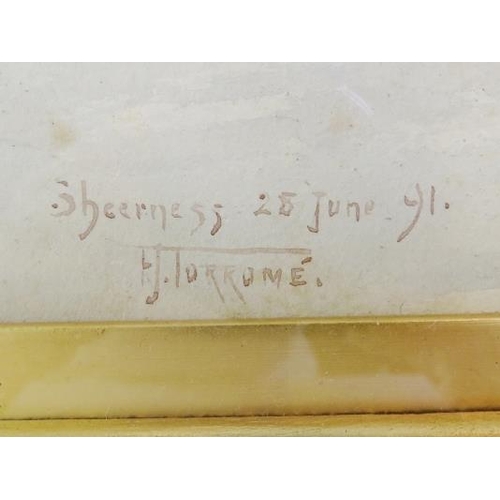 Sheerness 28 June 91.
F.J. TORROMÉ.